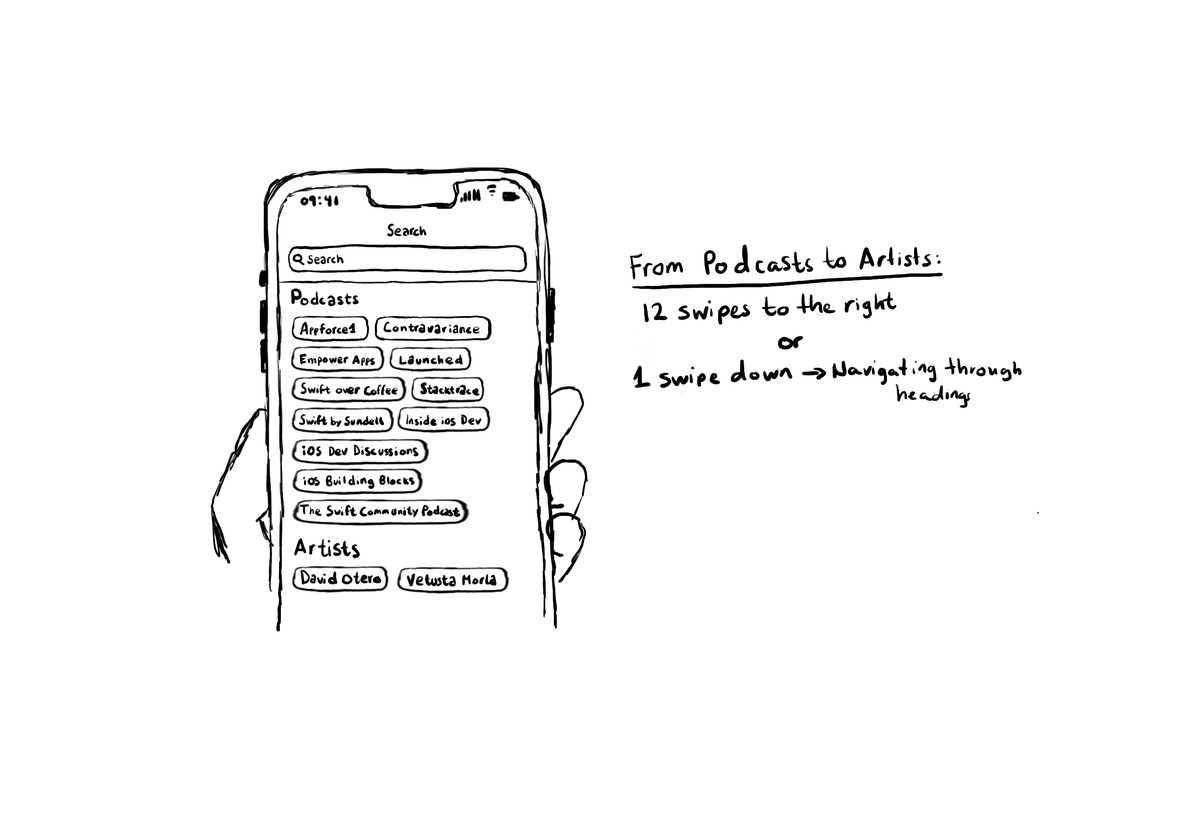 09:41
Search
Search
Podcasts
Appforce1 Contravariance
Empower Apps Launched
Swift over Coffee Stacktrace
Swift by Sundell Inside ios Dev
iOS Dev Discussions
iOS Building Blocks
The Swift Community Podcast
Artists
David Otero Vetusta Morla
From Podcasts to Artists:
12 swipes to the right
or
1 swipe down → Navigating through
headings